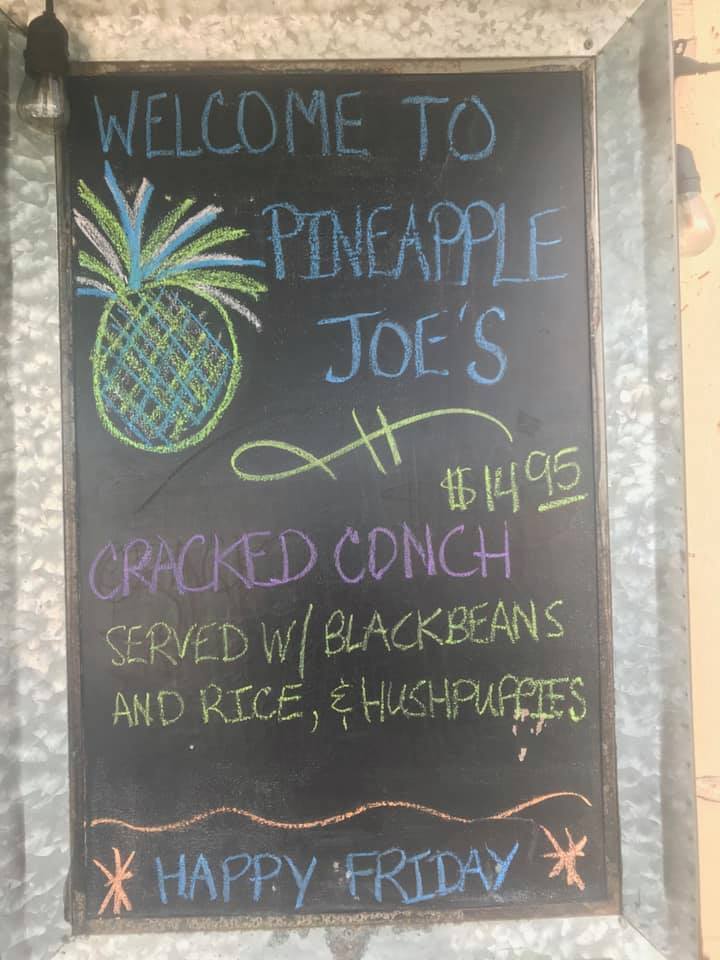 WELCOME TO
PINEAPPLE
JOE'S
$14 95
CRACKED CONCH
SERVED W/ BLACKBEANS
AND RICE, & HUSHPUPPIES
HAPPY FRIDAY